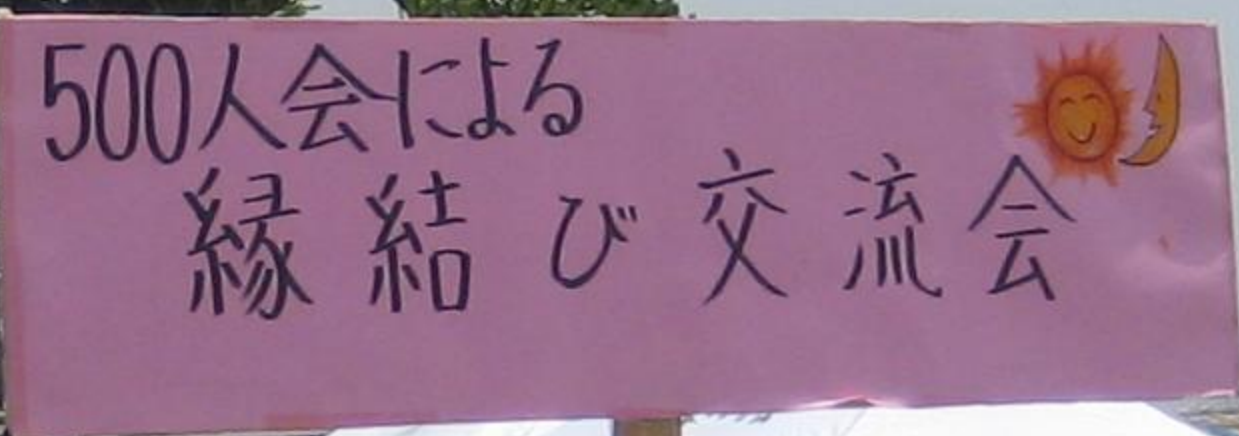 500人会による
縁結び交流会